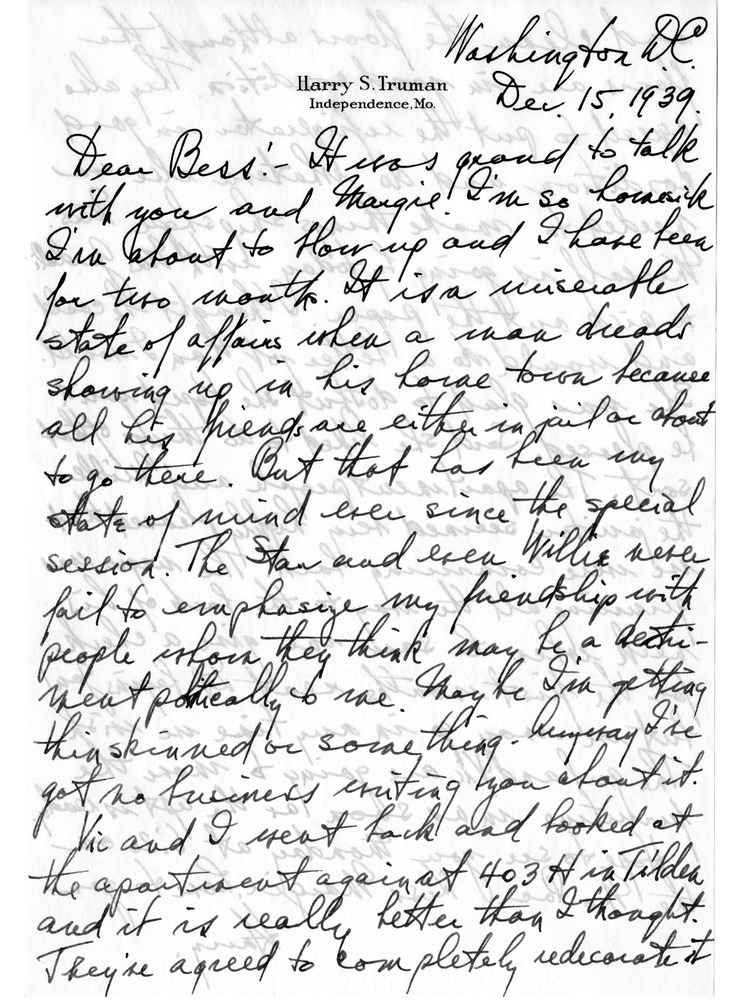 Washington D.C.
Harry S. Truman
Independence, Mo.
Dec. 15, 1939.
Dear Bess:- It was grand to talk
with you and Margie. I'm so homesick
I'm about to blow up and I have been
for two months. It is a miserable
state of affairs when a man dreads
showing up in his home town because
all his friends are either in jail or about
to go there. But that has been my
state of mind ever since the special
session. The Star and even Willie never
fail to emphasize my friendship with
people whom they think may be a detri-
ment politically to me. Maybe I'm getting
thin skinned or something. Anyway I've
got no business writing you about it.
Vic and I went back and looked at
the apartment again at 403 H in Tilden
and it is really better than I thought.
They're agreed to completely redecorate it